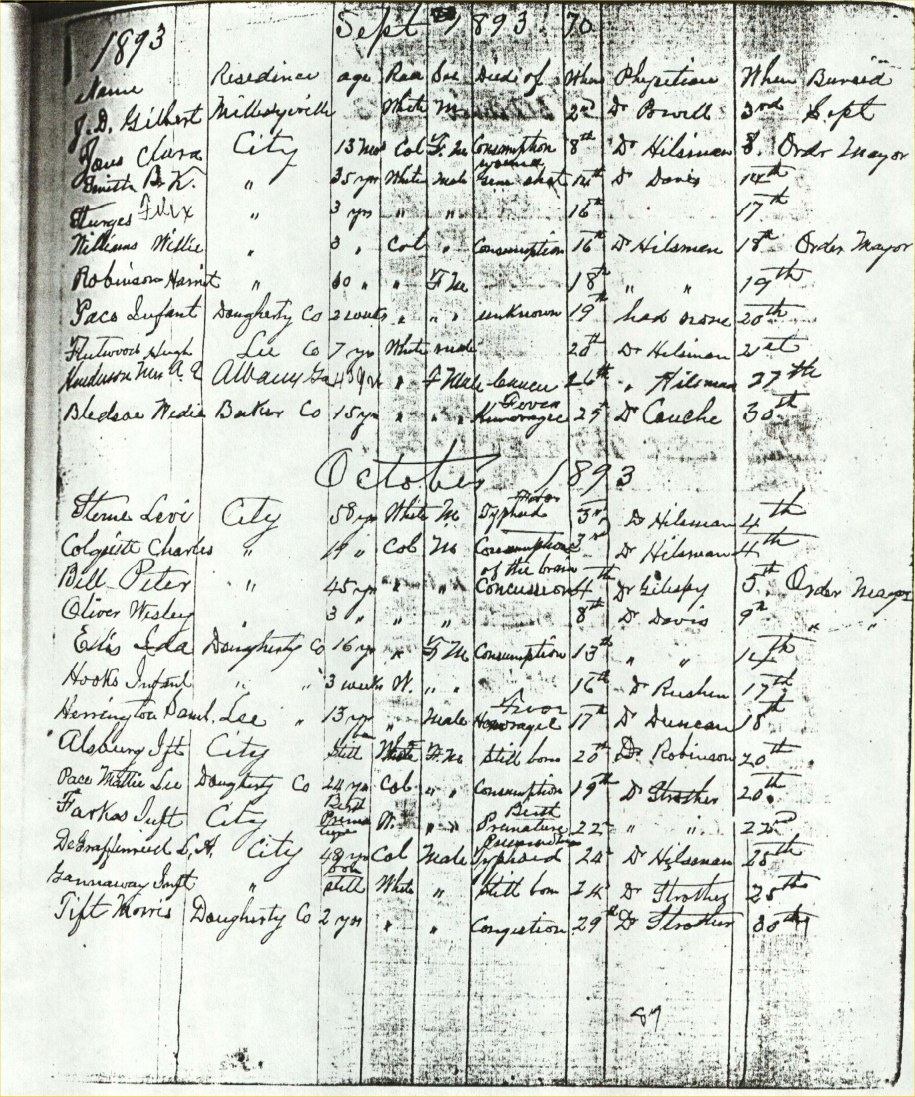 1893 Sept 1893 70
Name Residince age Race Sex Died of When Physitian When Buried
J. D. Gilbert Milledgville White M 2nd Dr Powell 3rd Sept
Clara City 13 Mos Col F. M Consumption 8th Dr Hilsman 8. Order Mayor
wound
Smith B. K. " 35 yr White Male Gun shot 14th Dr Davis 14th
Sturges Felix " 3 yrs " " 16th 17th
Williams Willie " 3 " Col " Consumption 16th Dr Hilsman 18th Order Mayor
Robinson Harriet " 60 " " F M 18th " " 19th
Pace Infant Dougherty Co 2 weeks " " " unknown 19th had none 20th
Fleetwood Hugh Lee Co 7 yr White male 20th Dr Hilsman 21st
Henderson Mrs A. Albany Ga " F Male Cancer 26th " Hilsman 27th
Fever
Bledsoe Baker Co 15 yr " " " 29th Dr Couche 30th
October 1893
Fever
Sterne Levi City 58 yrs White M Typhoid 3rd Dr Hilsman 4th
Charles " 19 " Col M Consumption 3rd Dr Hilsman 4th
of the brain
Bill Peter " 45 yr " " Concussion 4th Dr Gilespy 5th Order Mayor
Oliver Wesley " 3 " " " 8th Dr Davis 9th " "
Ellis Ida Dougherty Co 16 yr " F M Consumption 13th " " 14th
Hooks Infant " " 3 weeks W. " " 16th Dr 17th
Fevor
Herrington Lee " 13 yr " Male 17th Dr Duncan 18th
Alsburg Ift City Still White F. M Still born 20th Dr Robinson 20th
Pace Mattie Lee Dougherty Co 24 yr Col " " Consumption 19th Dr Strother 20th
Birth Birth
Farkas Inft City Premature W. " " Premature 22nd " " 22nd
Pneumonia
DeGraffenried S. A. City 48 yr Col Male Typhoid 24th Dr Hilsman 25th
born
Gannaway Inft " still White " Still born 24 Dr Strother 25th
Tift Morris Dougherty Co 2 yr " " Congestion 29th Dr Strother 30th
87